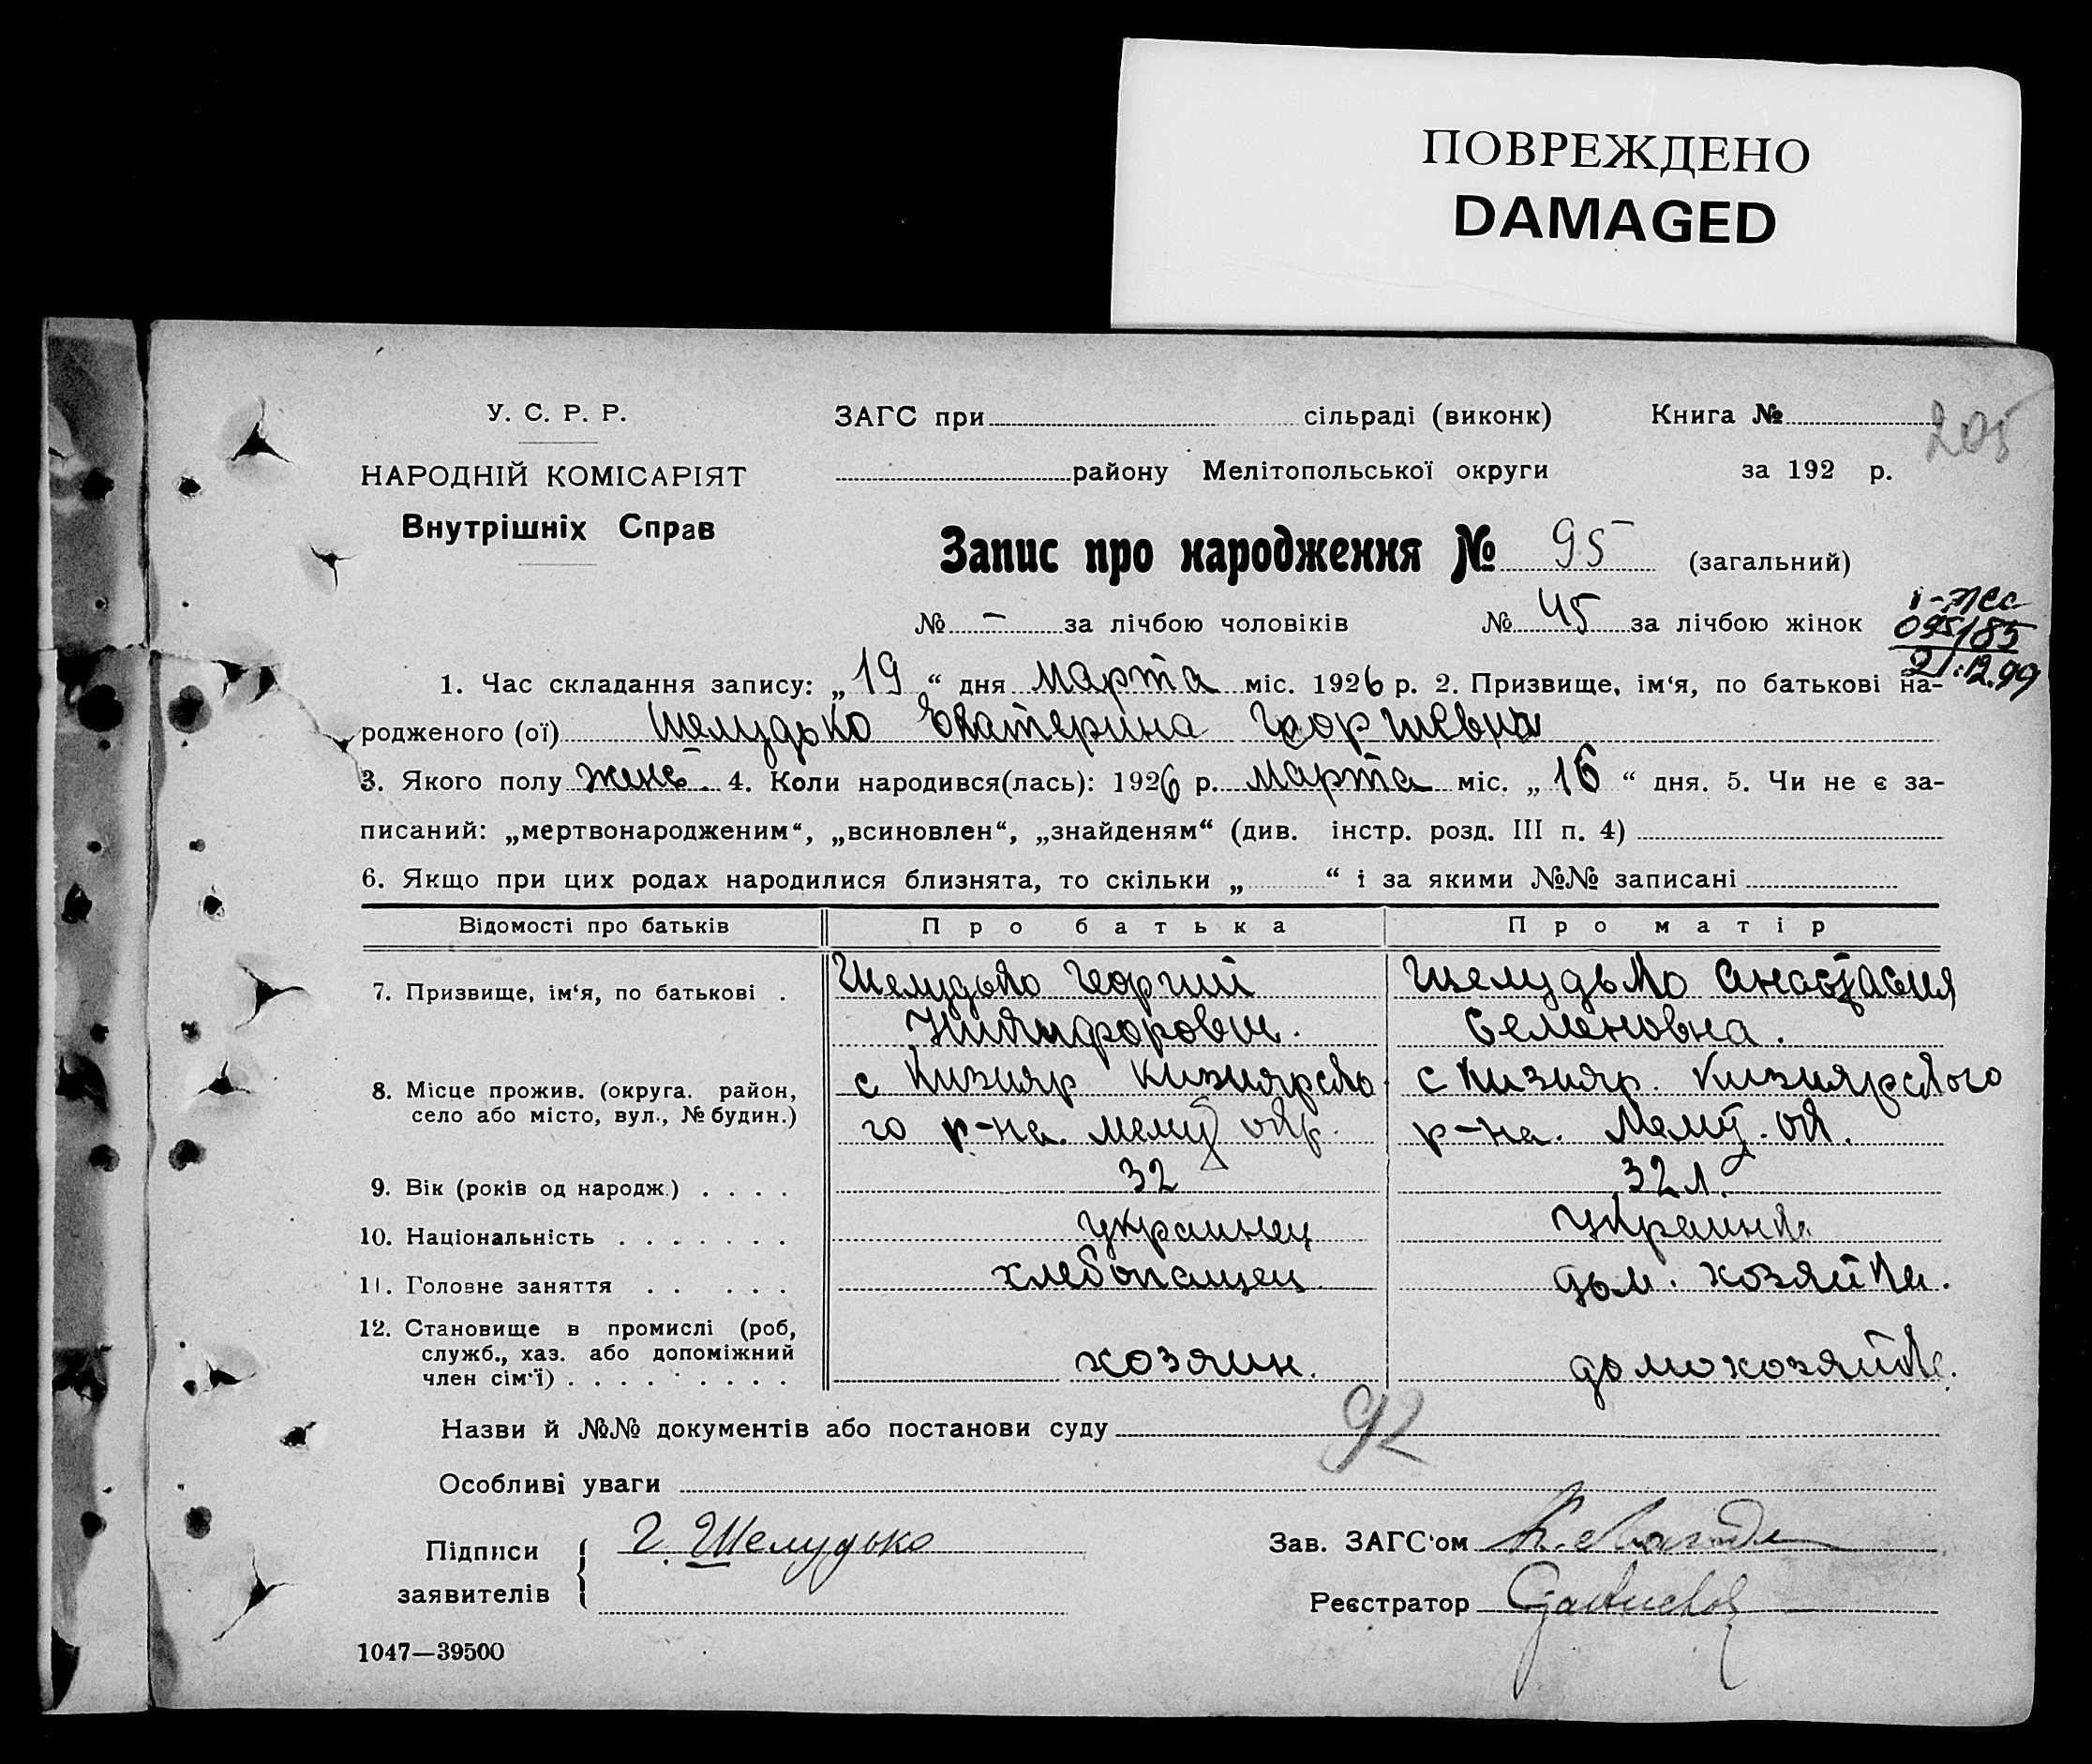 ПОВРЕЖДЕНО
DAMAGED
У. С. Р. Р.
НАРОДНІЙ КОМІСАРІЯТ
Внутрішніх Справ
ЗАГС при сільраді (виконк)
району Мелітопольської округи
Книга №
205
за 192 р.
Запис про народження № 95 (загальний)
№ – за лічбою чоловіків № 45 за лічбою жінок
095185
21.12.99
1. Час складання запису: „19“ дня марта міс. 1926 р. 2. Призвище, ім‘я, по батькові на-
родженого (ої) Шелудько Екатерина Георгиевна
3. Якого полу женс. 4. Коли народився(лась): 1926 р. марта міс. „16“ дня. 5. Чи не є за-
писаний: „мертвонародженим“, „всиновлен“, „знайденям“ (див. інстр. розд. III п. 4)
6. Якщо при цих родах народилися близнята, то скільки „ “ і за якими №№ записані
Відомості про батьків Про батька Про матір
7. Призвище, ім‘я, по батькові . Шелудько Георгий Шелудько Анастасия
Никифоров. Семеновна.
8. Місце прожив. (округа. район, с Кизияр Кизиярско- с Кизияр. Кизиярского
село або місто, вул., № будин.) го р-на. Мелит окр. р-на. Мелит. ок.
9. Вік (років од народж.) . . . . 32 32 л.
10. Національність . . . . . . . украинец украинка
11. Головне заняття . . . . . хлебопашец дом. хозяйка.
12. Становище в промислі (роб,
служб., хаз. або допоміжний хозяин. домохозяйка.
член сім‘ї) . . . . . . . . .
Назви й №№ документів або постанови суду
92
Особливі уваги
Підписи
заявителів
Г. Шелудько
Зав. ЗАГС‘ом
Реєстратор
1047—39500